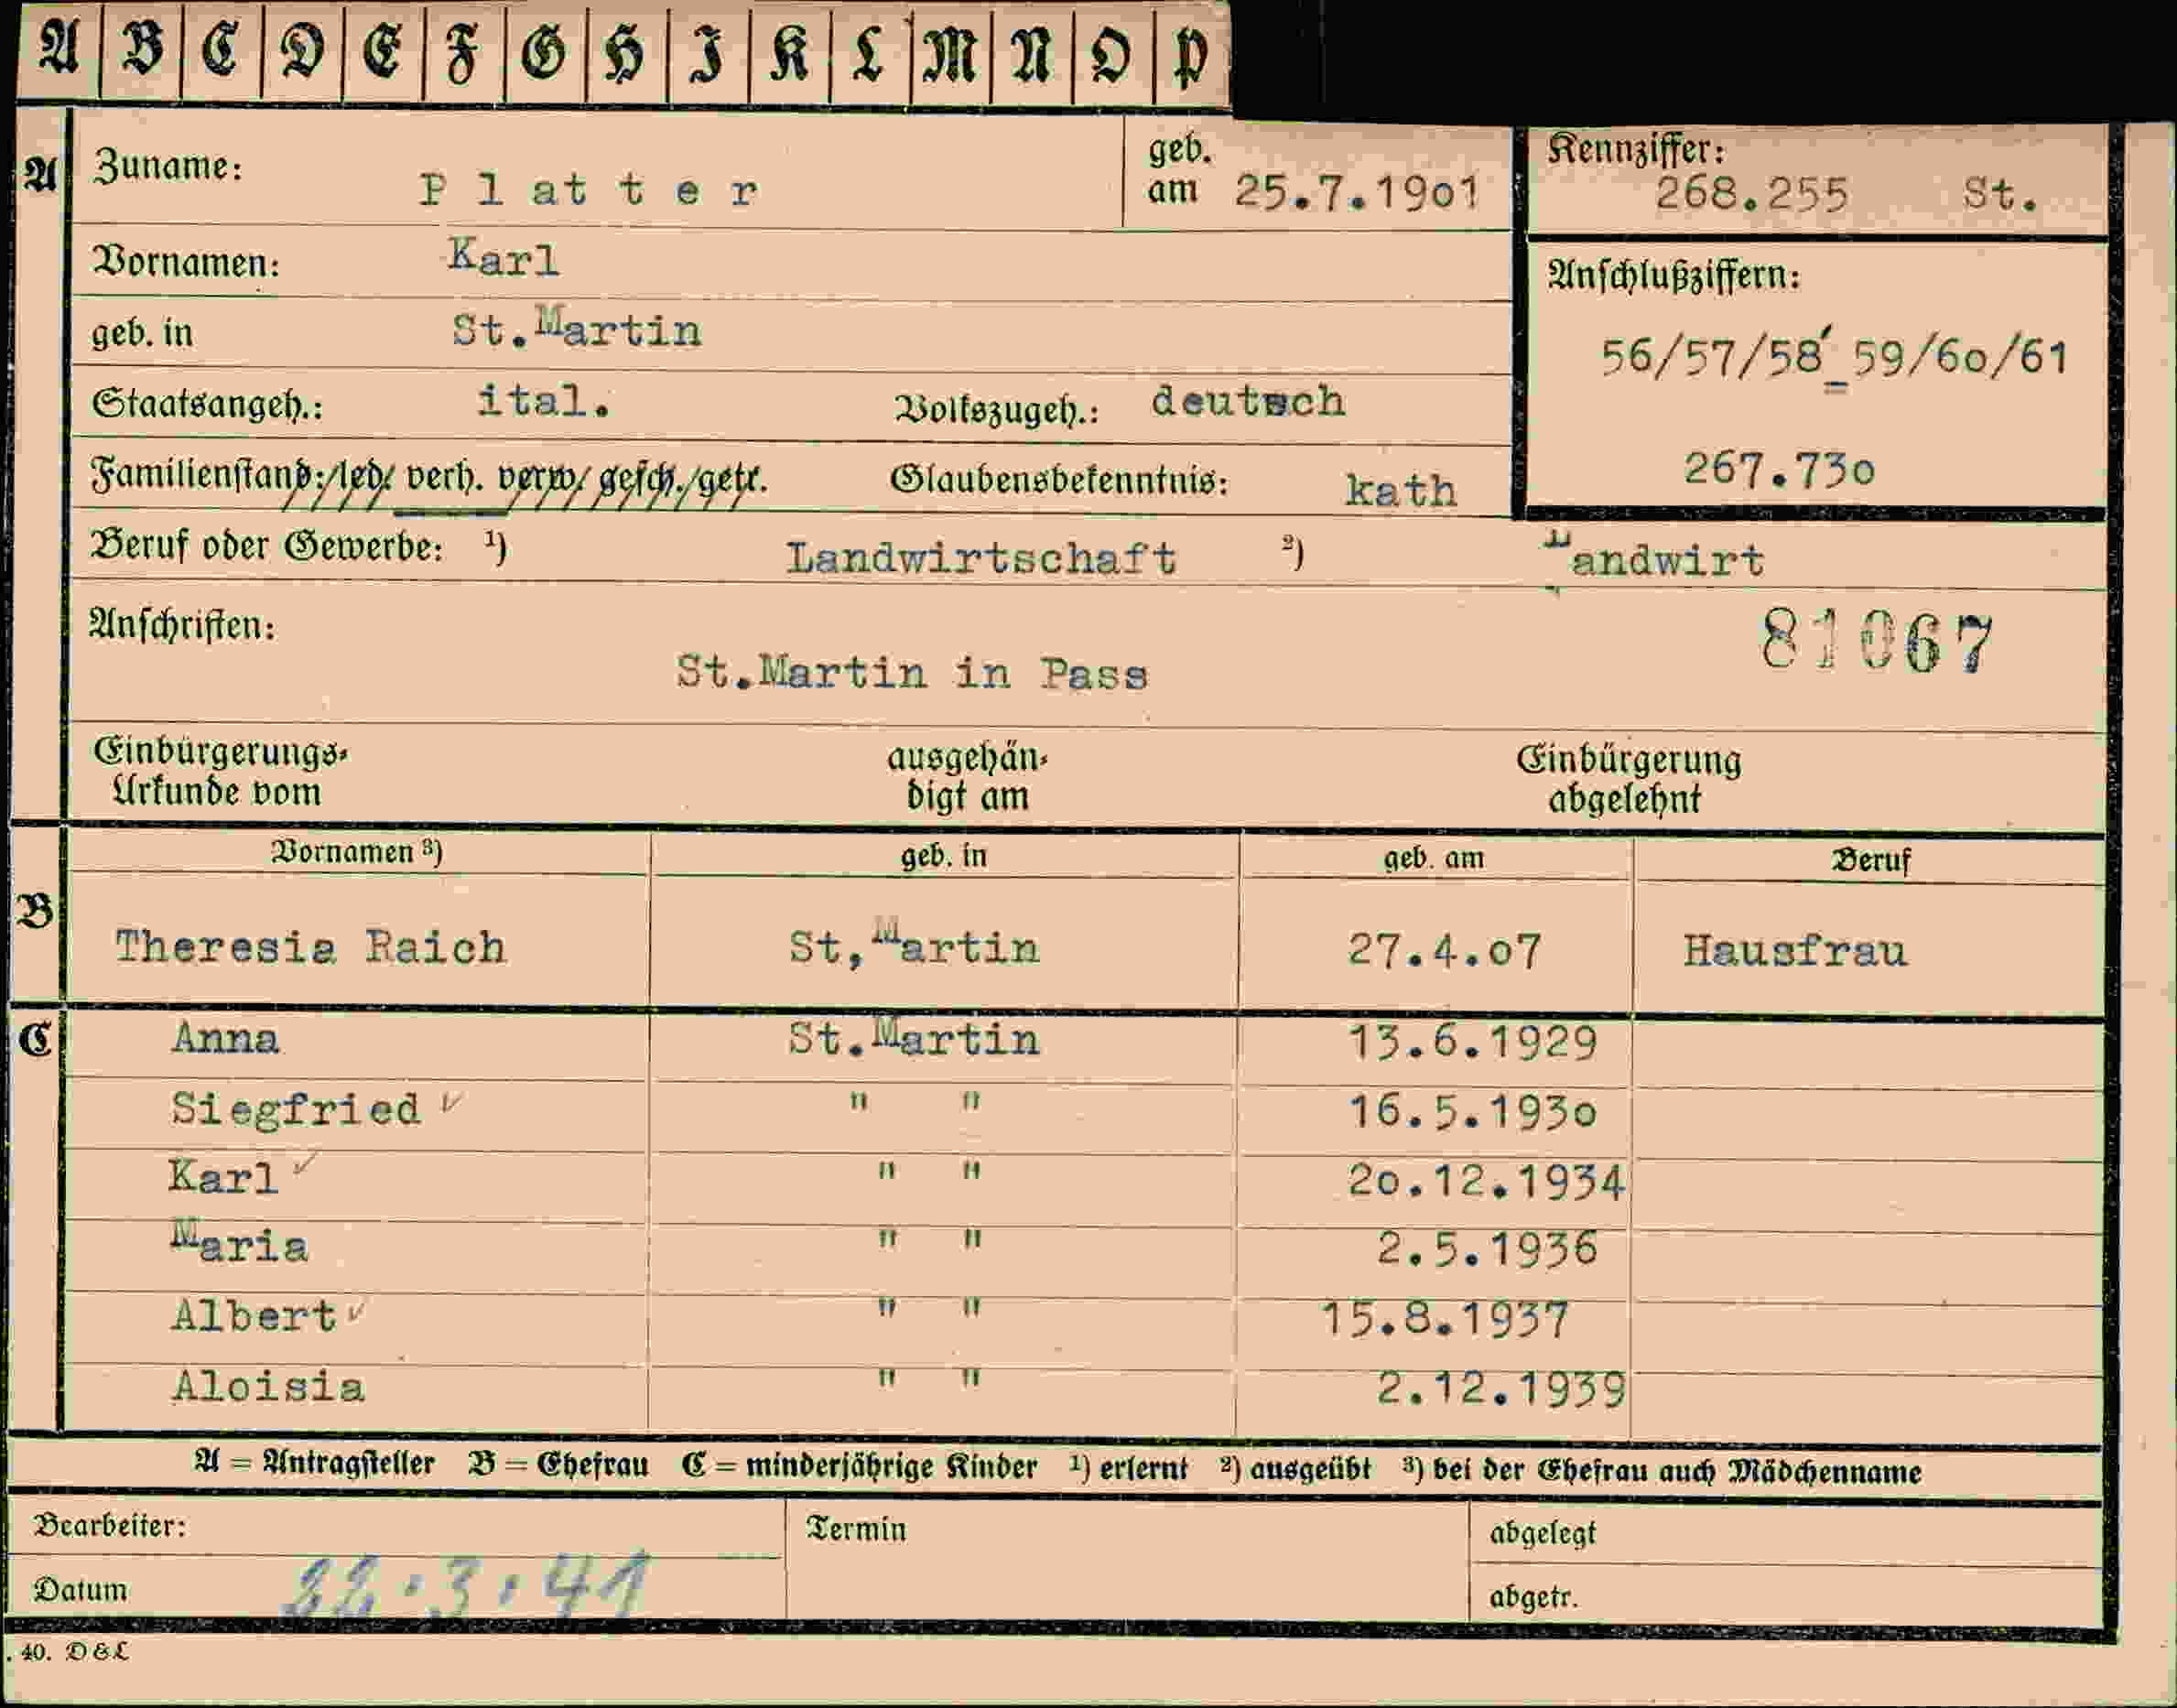 A B C D E F G H I K L M N O P
A Zuname: Platter geb. am 25.7.19o1 Kennziffer: 268.255 St.
Vornamen: Karl Anschlußziffern:
geb. in St.Martin 56/57/58 59/6o/61
Staatsangeh.: ital. Volkszugeh.: deutsch
Familienstand: led. verh. verw. gesch./getr. Glaubensbekenntnis: kath 267.73o
Beruf oder Gewerbe: ¹) Landwirtschaft ²) Landwirt
Anschriften: 81067
St.Martin in Pass
Einbürgerungs- ausgehän- Einbürgerung
Urkunde vom digt am abgelehnt
Vornamen ³) geb. in geb. am Beruf
B Theresia Raich St,Martin 27.4.o7 Hausfrau
C Anna St.Martin 13.6.1929
Siegfried " " 16.5.193o
Karl " " 2o.12.1934
Maria " " 2.5.1936
Albert " " 15.8.1937
Aloisia " " 2.12.1939
A = Antragsteller B = Ehefrau C = minderjährige Kinder ¹) erlernt ²) ausgeübt ³) bei der Ehefrau auch Mädchenname
Bearbeiter: Termin abgelegt
Datum 22.3.41 abgetr.
. 40. D & L